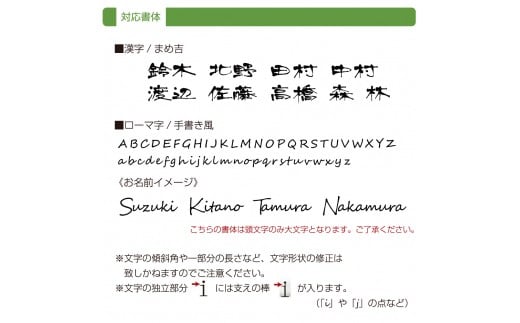 対応書体
■漢字/まめ吉
鈴木 北野 田村 中村
渡辺 佐藤 高橋 森 林
■ローマ字/手書き風
ABCDEFGHIJKLMNOPQRSTUVWXYZ
abcdefghijklmnopqrstuvwxyz
《お名前イメージ》
Suzuki Kitano Tamura Nakamura
こちらの書体は頭文字のみ大文字となります。ご了承ください。
※文字の傾斜角や一部分の長さなど、文字形状の修正は
致しかねますのでご注意ください。
※文字の独立部分 i には支えの棒 i が入ります。
(「i」や「j」の点など)